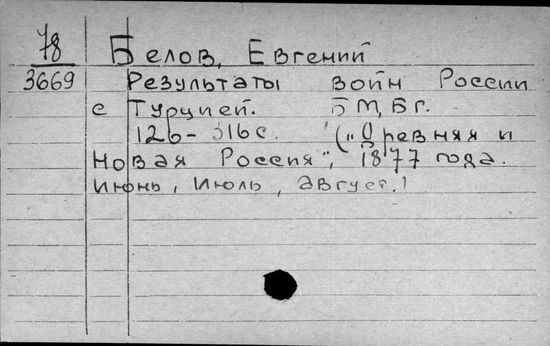 78 Белов, Евгений
3669 Результаты войн России
с Турцией. БМ, Бг.
126-316 с. ("Древняя и
Новая Россия", 1877 года.
Июнь, Июль, Август.)